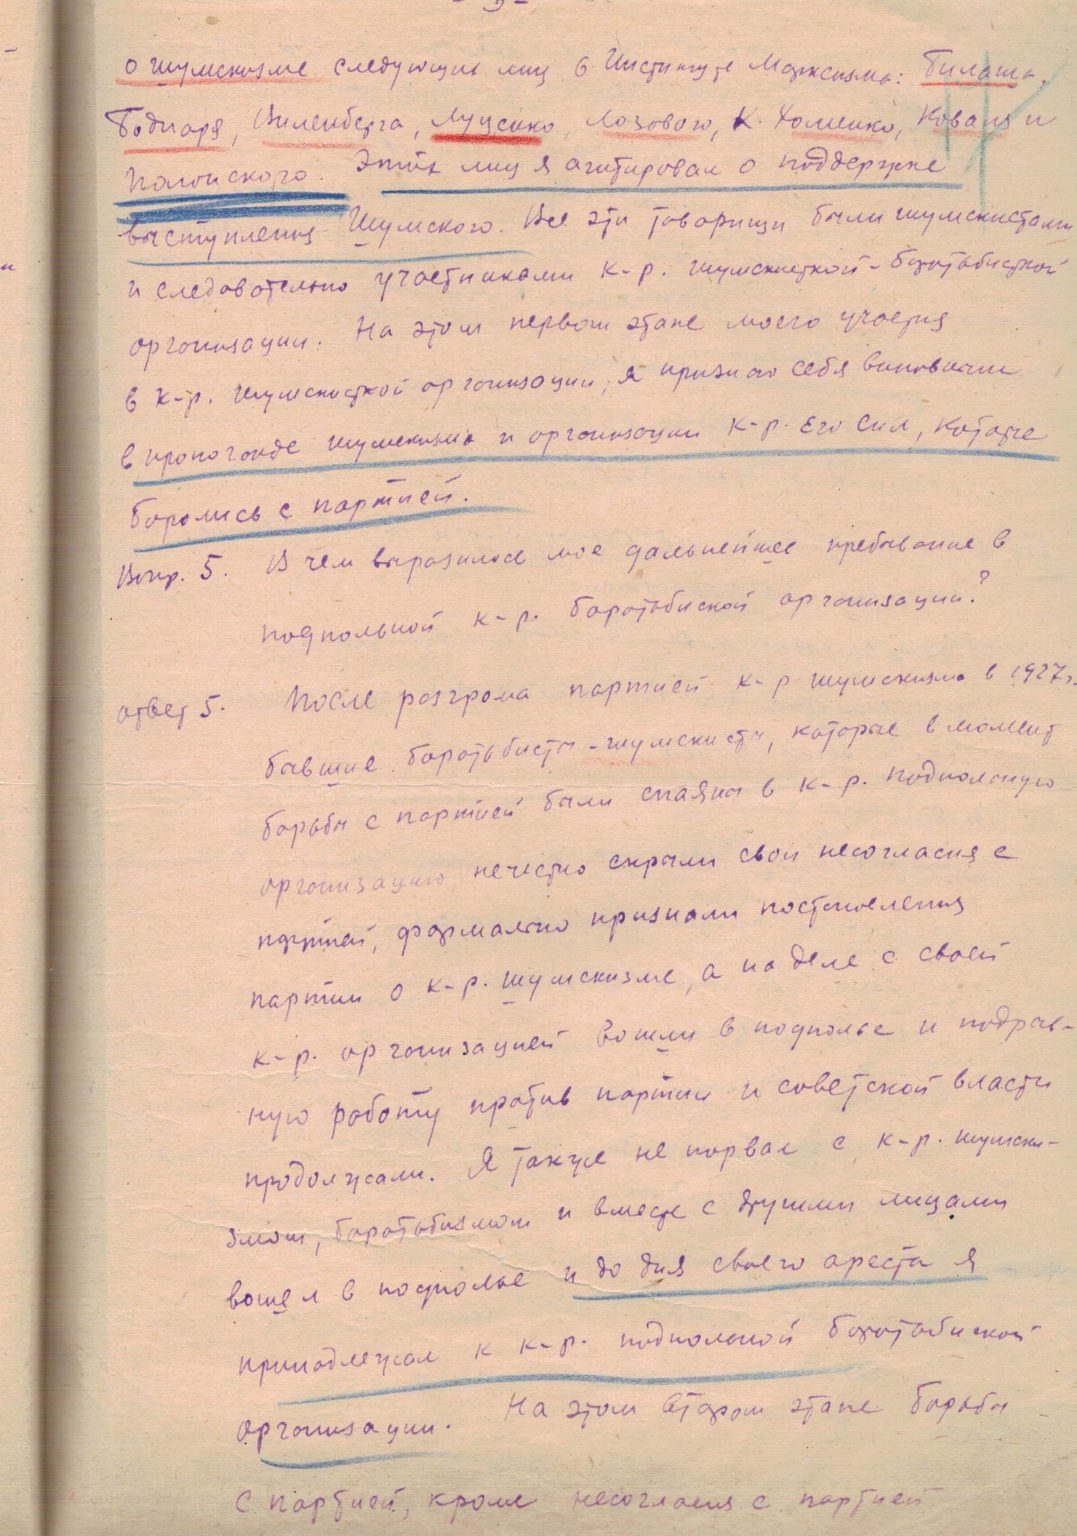 - 5 -
о шумскизме следующих лиц в Институте Марксизма: Билаша,
Боднаря, Виленберга, Луценко, Лозового, К. Хоменко, Коваля и
Полонского. Этих лиц я агитировал о поддержке
выступления Шумского. Все эти товарищи были шумскистами
и следовательно участниками к-р. шумскисткой-боротьбисткой
организации. На этом первом этапе моего участия
в к-р. шумскисткой организации, я признаю себя виновным
в пропоганде шумскизма и организации к-р. его сил, которые
боролись с партией.
Вопр. 5. В чем выразилось мое дальнейшее пребывание в
подпольной к-р. боротьбиской организации?
ответ 5. После розгрома партией к-р шумскизма в 1927 г.
бывшие боротьбисты-шумскисты, которые в момент
борьбы с партией были спаяны в к-р. подпольную
организацию, нечестно скрыли свои несогласия с
партией, формально признали постановления
партии о к-р. шумскизме, а на деле с своей
к-р. организацией вошли в подполье и подрыв-
ную работу против партии и советской власти
продолжали. Я также не порвал с к-р. шумски-
змом, боротьбизмом и вместе с другими лицами
вошел в подполье и до дня своего ареста я
принадлежал к к-р. подпольной боротьбиской
организации. На этом втором этапе борьбы
с партией, кроме несогласия с партией